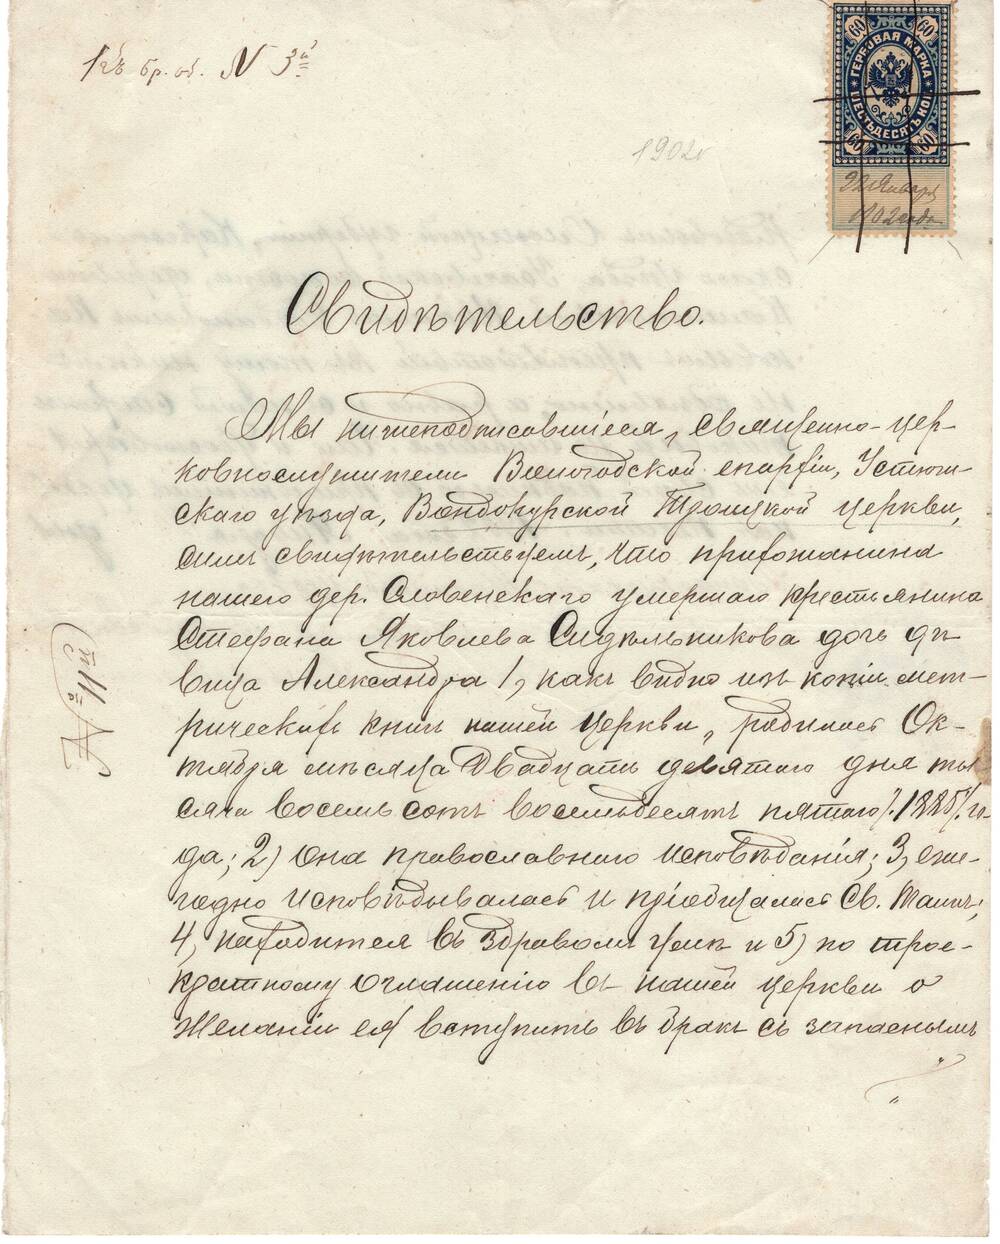 Къ бр. об. N 3й
1902г
60 60
ГЕРБОВАЯ МАРКА
ШЕСТЬДЕСЯТЪ КОП.
60 60
22 Января
1902 года
Свидѣтельство.
Мы нижеподписавшіеся, священно-цер-
ковнослужители Вологодской епархіи, Устюж-
скаго уѣзда, Вондокурской Троицкой церкви,
симъ свидѣтельствуемъ, что прихожанина
нашего дер. Словенскаго умершаго крестьянина
Стефана Яковлева Сидѣльникова дочь дѣ-
вица Александра 1, какъ видно изъ копіи мет-
рическихъ книгъ нашей церкви, родилась Ок-
тября мѣсяца двадцать девятаго дня ты-
сяча восемь сотъ восемьдесятъ пятаго /:1885:/ го-
да; 2) она православнаго исповѣданія; 3, еже-
годно исповѣдывалась и пріобщалась Св. Таинъ;
4, находится въ здравомъ умѣ и 5) по трое-
кратному оглашенію въ нашей церкви о
желаніи ея вступить въ бракъ съ запаснымъ